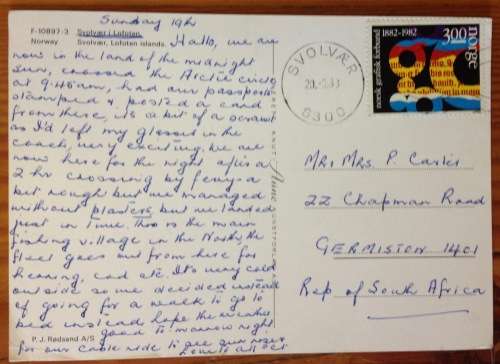 Sunday 19th
F-10897-3 Svolvær i Lofoten.
Norway Svolvær, Lofoten islands.
Hallo, we are
now in the land of the midnight
sun, crossed the Arctic circle
at 9.45am, had our passports
stamped & posted a card
from there, its a bit of a scrawl
as I'd left my glasses in the
coach, very exciting, we are
now here for the night after a
2 hr crossing by ferry - a
bit rough but we managed
without plasters, but we landed
just in time. This is the main
fishing village in the North, the
fleet goes out from here for
herring, cod etc. Its very cold
outside so we decided instead
of going for a walk to go to
bed instead hope the weather
good tomorrow night
for our cable ride to see sun
love to all
P. J. Rødsand A/S
SVOLVÆR
8300
norsk grafisk forbund
1882-1982
3.00
norge
Mr Mrs. P.
22 Chapman Road
GERMISTON 1401
Rep of South Africa